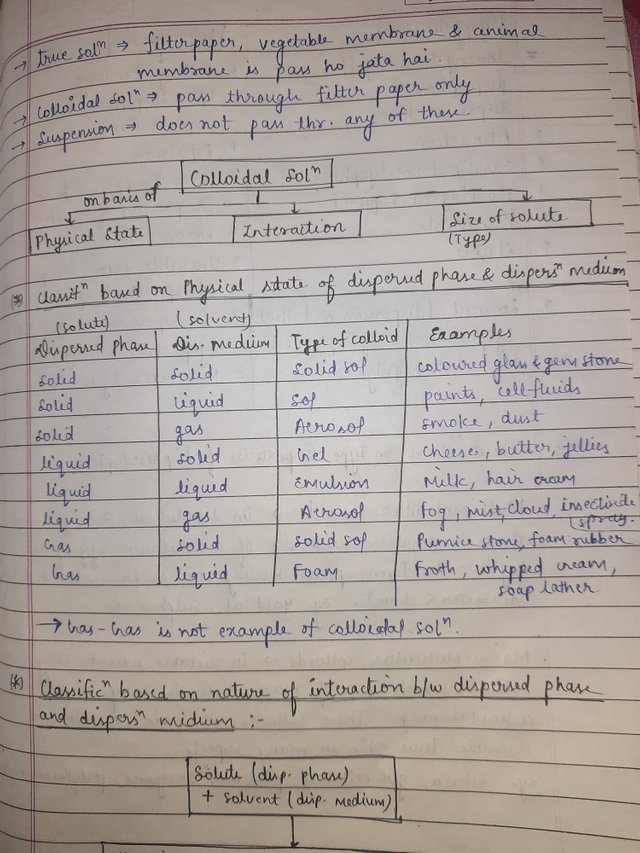 → True solⁿ ⇒ filter paper, vegetable membrane & animal
membrane is pass ho jata hai.
→ Colloidal solⁿ ⇒ pass through filter paper only
→ Suspension ⇒ does not pass thr. any of these.
Colloidal Solⁿ
on basis of
Physical State Interaction Size of solute
(Type)
(*) Classifⁿ based on Physical state of dispersed phase & dispersⁿ medium
(solute) (solvent)
Dispersed phase Dis. medium Type of colloid Examples
solid solid Solid sol coloured glass & gem stone
solid liquid Sol paints, cell-fluids
solid gas Aerosol smoke, dust
liquid solid Gel Cheese, butter, jellies
liquid liquid Emulsion Milk, hair cream
liquid gas Aerosol Fog, mist, cloud, insecticide
spray
Gas solid solid sol Pumice stone, foam rubber
Gas liquid Foam Froth, whipped cream,
soap lather
→ Gas-Gas is not example of colloidal solⁿ.
(*) Classificⁿ based on nature of interaction b/w dispersed phase
and dispersⁿ midium :-
Solute (disp. phase)
+ solvent (disp. medium)